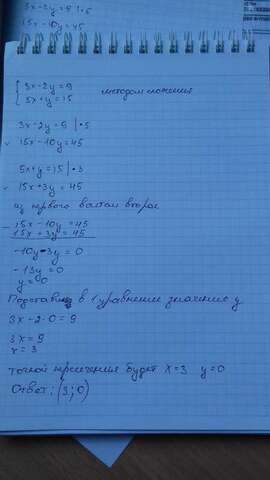 3x-2y=9 |·5
15x-10y=45
{3x-2y=9
5x+y=15
методом сложения
3x-2y=9 |·5
15x-10y=45
5x+y=15 |·3
15x+3y=45
из первого вычтем второе
15x-10y=45
15x+3y=45
-10y-3y=0
-13y=0
y=0
Подставим в 1 уравнение значение y
3x-2·0=9
3x=9
x=3
точкой пересечения будет x=3 y=0
Ответ: (3;0)